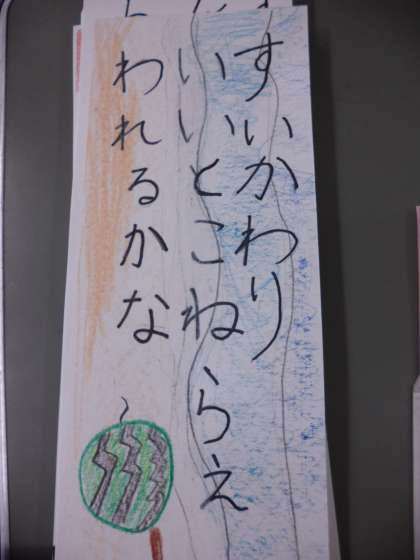 すいかわり
いいとこねらえ
われるかな